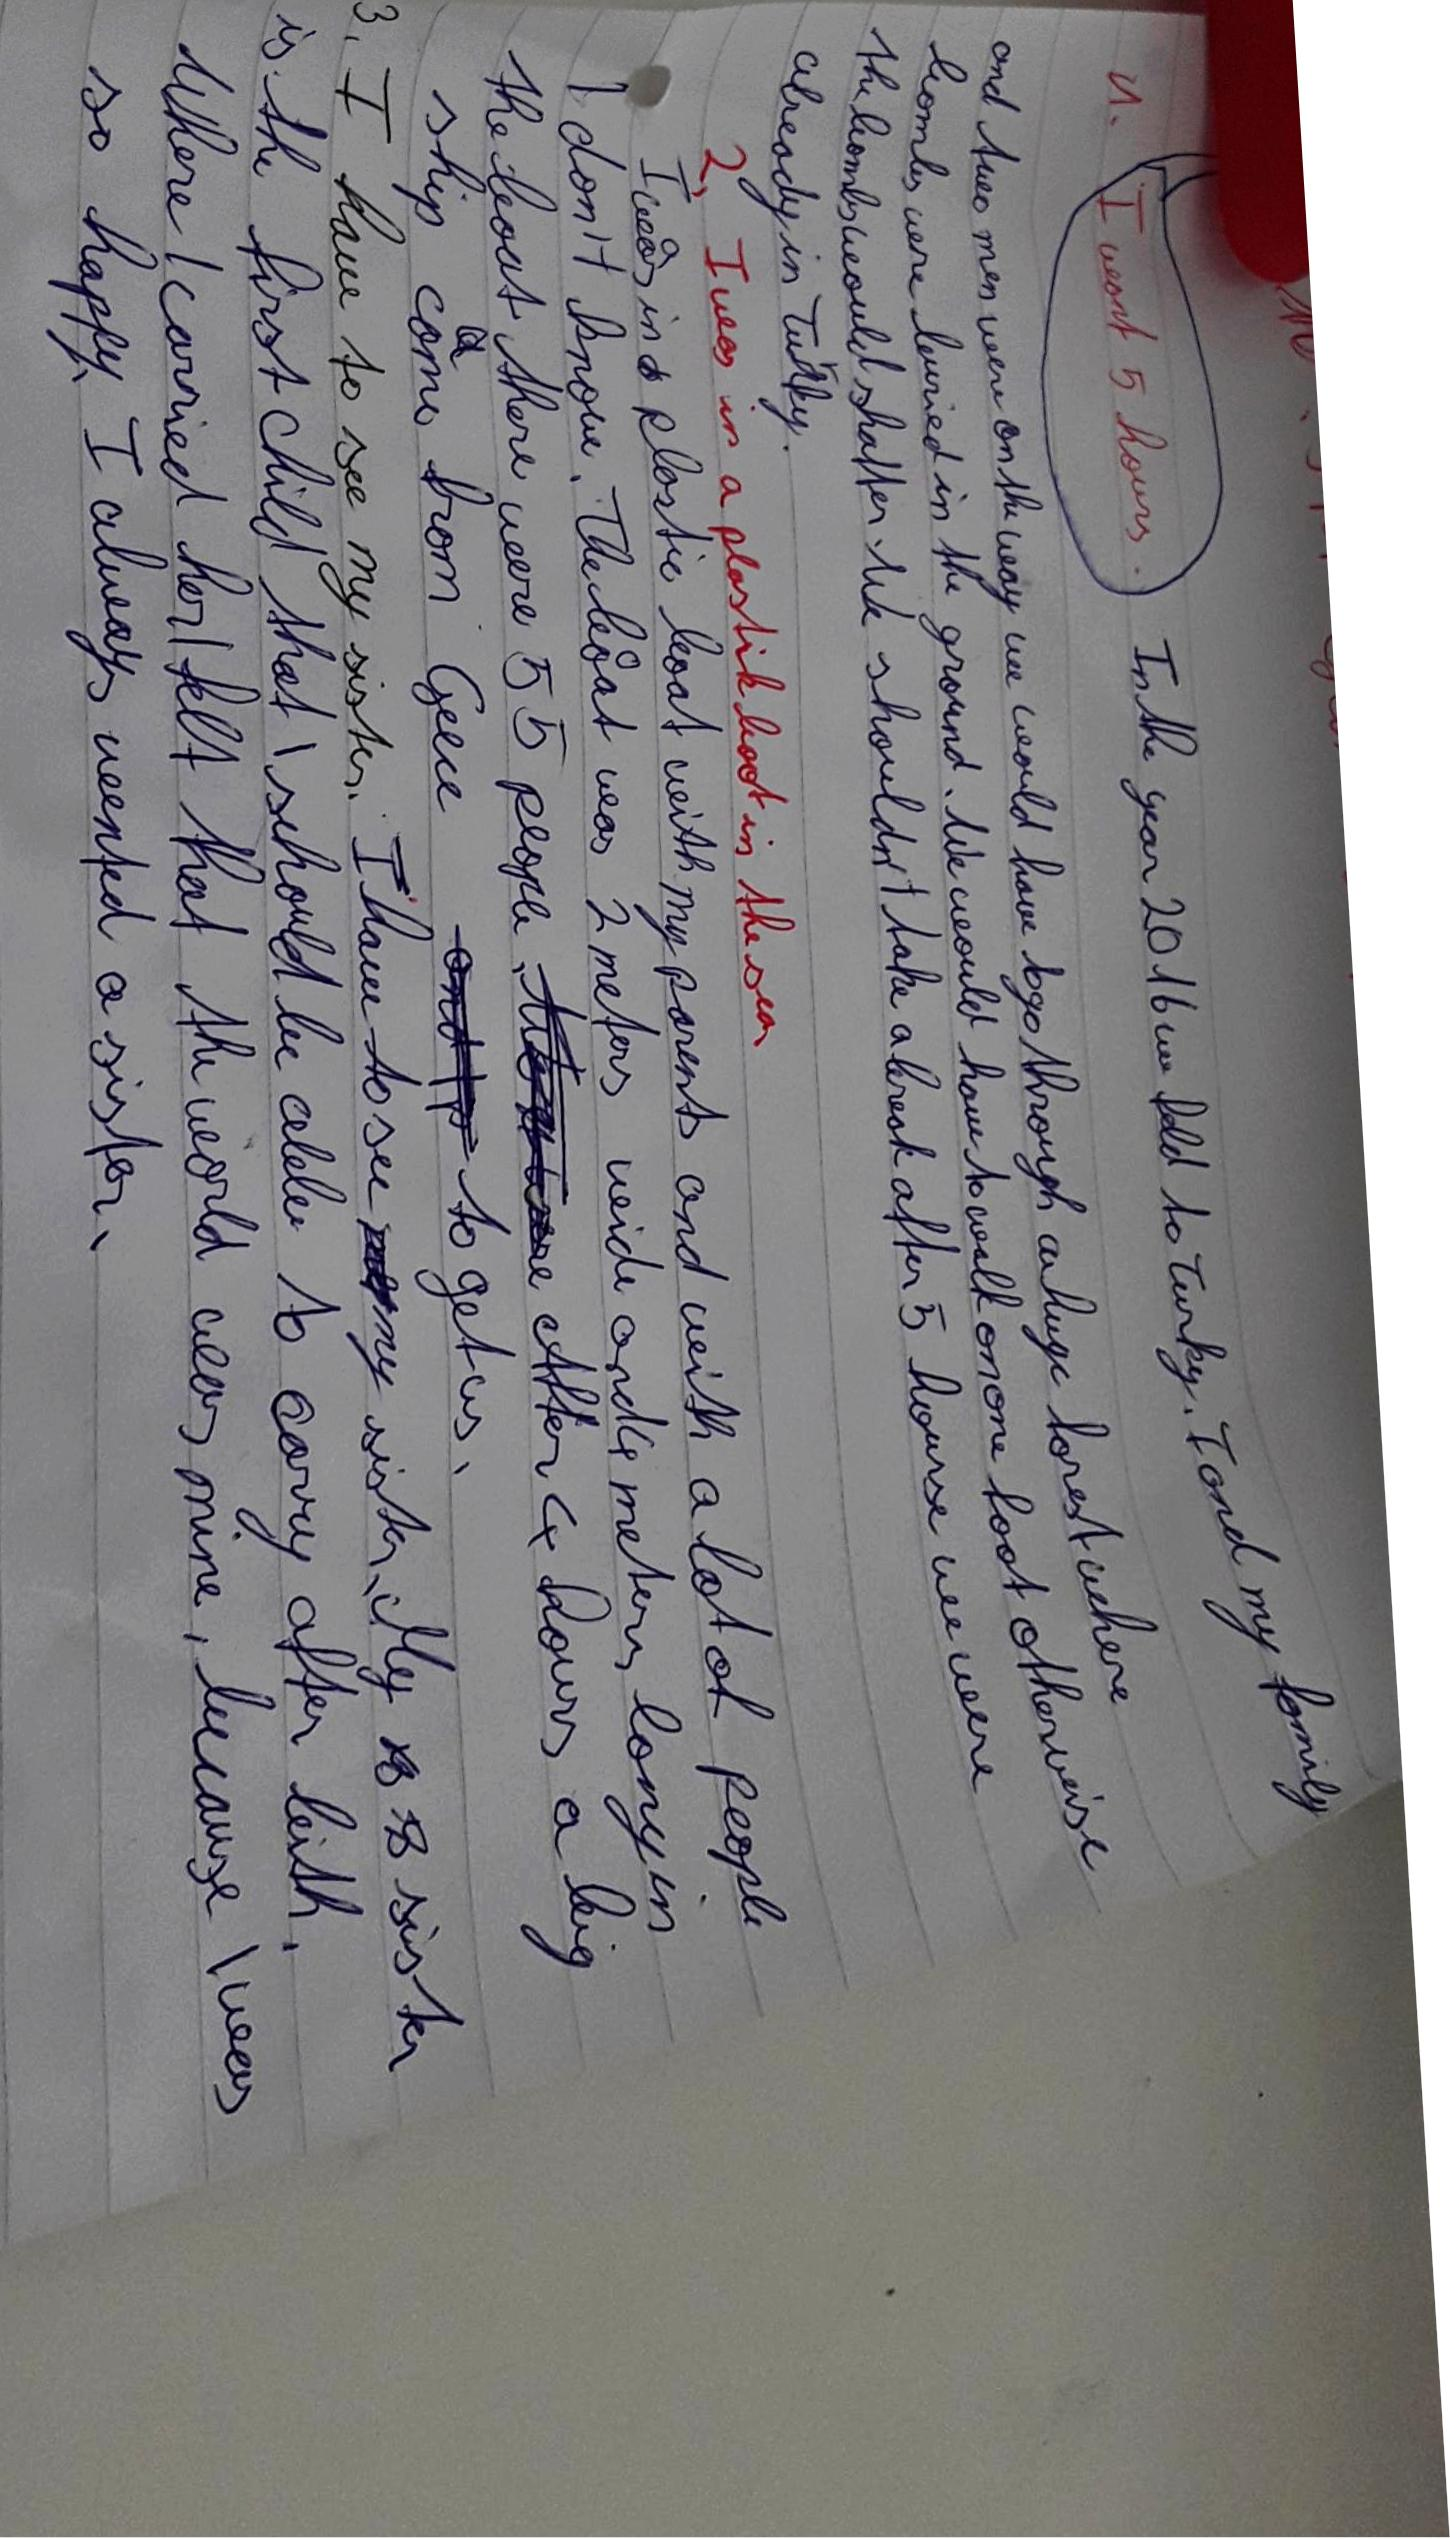 1. I went 5 hours. In the year 2016 we fled to Turky. I and my family
and two men were on the way we would have to go through a huge forest where
bombs were buried in the ground. We would have to walk on one foot otherwise
the bombs would shatter. We shouldn't take a break after 5 hourse we were
already in Turky.
2. I was in a plastik boot in the sea
I was in a plastic boat with my parents and with a lot of people
I don't know. The boat was 2 meters wide and 4 meters long in
the boat there were 55 people. after 4 hours a big
ship came from Geece to get us.
3. I have to see my sister. I have to see my sister. My sister
is the first child that I schould be able to carry after birth.
Where I carried her I felt that the world was mine, because I was
so happy. I always wented a sister.